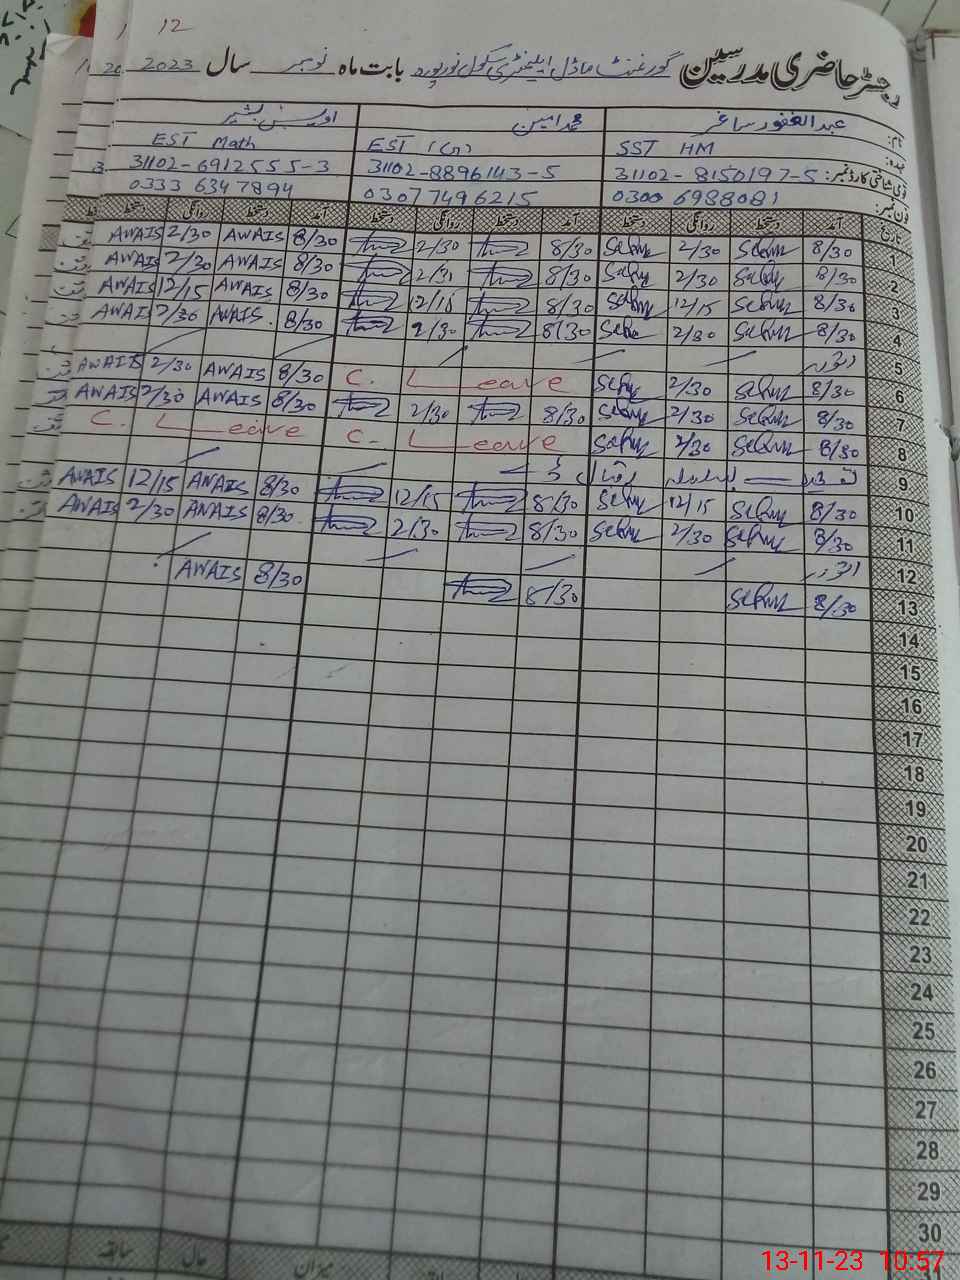 12
رجسٹر حاضری مدرسین گورنمنٹ ماڈل ایلیمنٹری سکول نورپور بابت ماہ نومبر سال 2023
نام: عبدالغفور ساغر محمد امین اویس بشیر
عہدہ: SST HM EST EST Math
قومی شناختی کارڈ نمبر: 31102-8150197-5 31102-8896143-5 31102-6912555-3
فون نمبر: 0300 6988081 0307 7496215 0333 6347894
تاریخ آمد دستخط روانگی دستخط آمد دستخط روانگی دستخط آمد دستخط روانگی دستخط
1 8/30 2/30 8/30 2/30 8/30 AWAIS 2/30 AWAIS
2 8/30 2/30 8/30 2/31 8/30 AWAIS 2/30 AWAIS
3 8/30 12/15 8/30 12/15 8/30 AWAIS 12/15 AWAIS
4 8/30 2/30 8/30 2/30 8/30 AWAIS 2/30 AWAIS
5 اتوار
6 8/30 2/30 C. Leave 8/30 AWAIS 2/30 AWAIS
7 8/30 2/30 8/30 2/30 8/30 AWAIS 2/30 AWAIS
8 8/30 2/30 C. Leave C. Leave
9 بسلسلہ اقبال ڈے
10 8/30 12/15 8/30 12/15 8/30 AWAIS 12/15 AWAIS
11 8/30 2/30 8/30 2/30 8/30 AWAIS 2/30 AWAIS
12 اتوار
13 8/30 8/30 8/30 AWAIS
14
15
16
17
18
19
20
21
22
23
24
25
26
27
28
29
30
31
میزان حال سابقہ
13-11-23 10:57